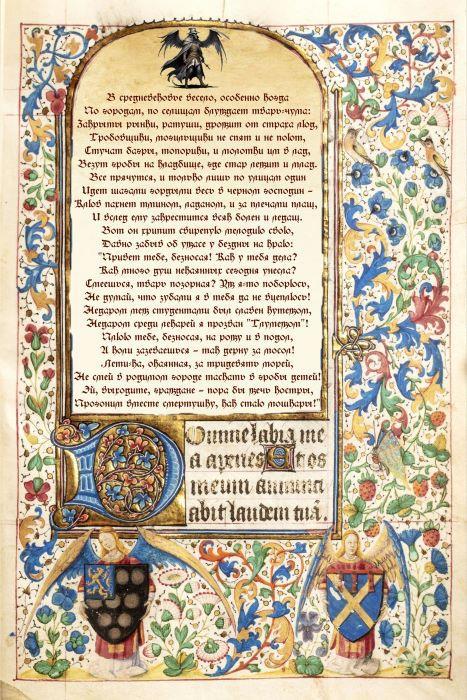 В средневековье весело, особенно когда
По городам, по селищам блуждает тварь-чума:
Закрыты рынки, ратуши, дрожит от страха люд,
Гробовщики, могильщики не спят и не поют,
Стучат багры, топорики, и молотки им в лад,
Везут гробы на кладбище, где стар лежит и млад.
Все прячутся, и только лишь по улицам один
Идет шагами гордыми весь в черном господин –
Клюв пахнет тмином, ладаном, и за плечами плащ,
И вслед ему закрестится всяк болен и ледащ.
Вот он хрипит свирепую мелодию свою,
Давно забыв об ужасе у бездны на краю:
"Привет тебе, безносая! Как у тебя дела?
Как много душ нежданных сегодня унесла?
Смеешься, тварь позорная? Уж я-то подберюсь,
Не думай, что зубами я в тебя да не вцеплюсь!
Недаром меж студентами был славен кутежом,
Недаром среди лекарей я прозван "Глумежом"!
Плюю тебе, безносая, на рожу и в подол,
А коли зазеваешься – так дерну за мосол!
Лети-ка, окаянная, за тридевять морей,
Не смей в родимом городе таскать в гробы детей!
Эй, выходите, граждане – пора бы жечь костры,
Прогоним вместе смертушку, как стаю мошкары!"
Domine labia me
a aperies Et os
meum annunci
abit laudem tuā.